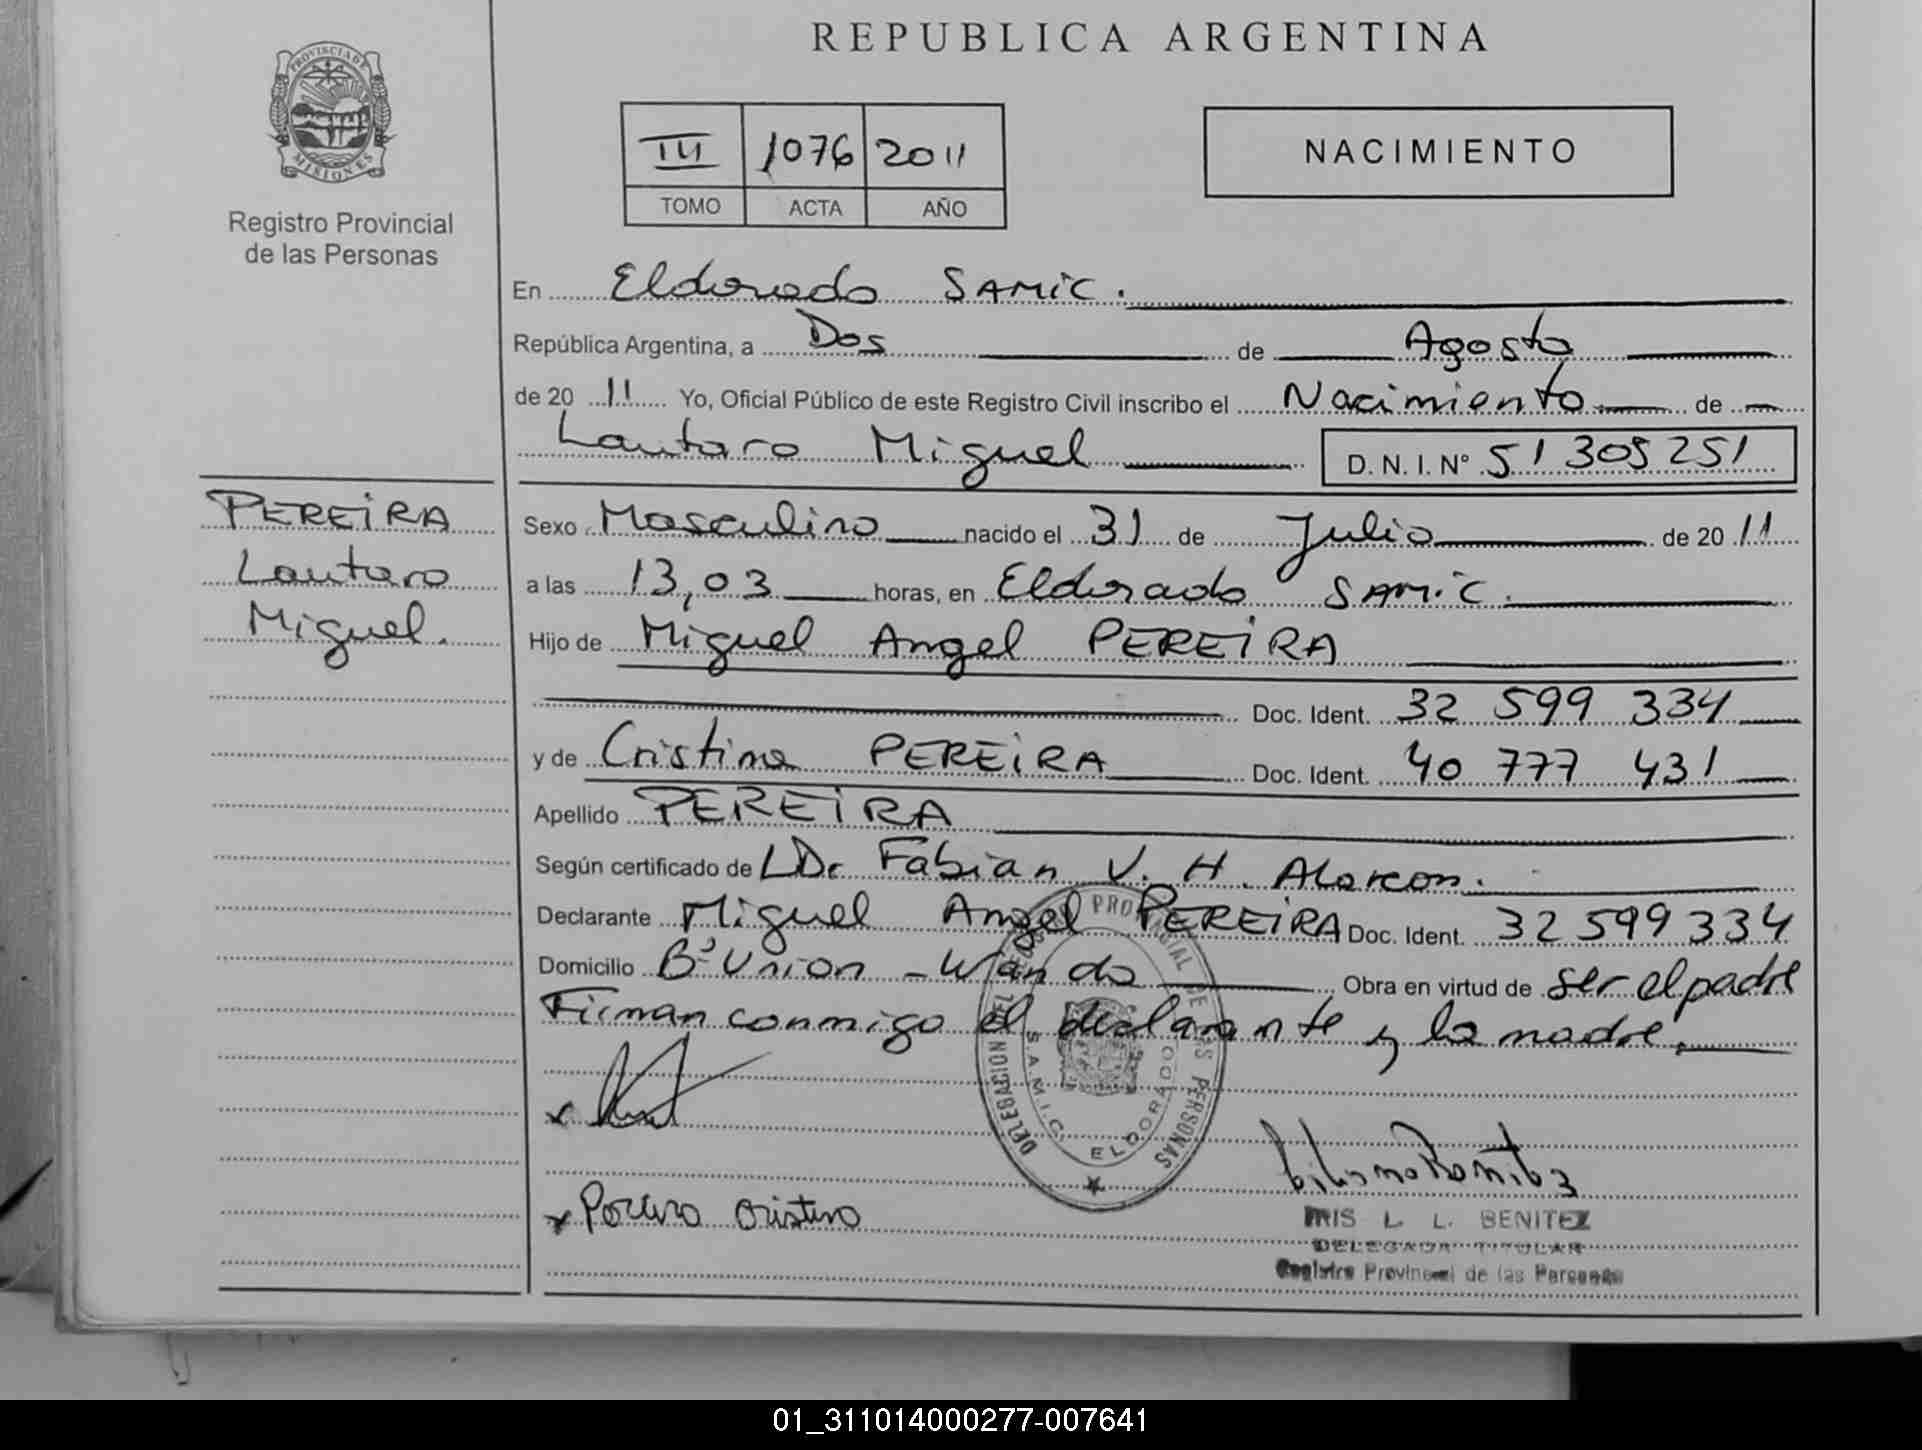 REPUBLICA ARGENTINA
PROVINCIA DE
MISIONES
Registro Provincial
de las Personas
III 1076 2011
TOMO ACTA AÑO
NACIMIENTO
En Eldorado SAMIC.
República Argentina, a Dos de Agosto
de 20 11 Yo, Oficial Público de este Registro Civil inscribo el Nacimiento de
Lautaro Miguel D. N. I. N° 51 305 251
PEREIRA
Lautaro
Miguel.
Sexo Masculino nacido el 31 de Julio de 20 11
a las 13,03 horas, en Eldorado SAMIC.
Hijo de Miguel Angel PEREIRA
Doc. Ident. 32 599 334
y de Cristina PEREIRA Doc. Ident. 40 777 431
Apellido PEREIRA
Según certificado de Dr Fabian V. H. Alarcon.
Declarante Miguel Angel PEREIRA Doc. Ident. 32 599 334
Domicilio B° Union - Wanda Obra en virtud de ser el padre
Firman conmigo el declarante y la madre.
DELEGACION DEL REGISTRO PROVINCIAL DE LAS PERSONAS
S.A.M.I.C. ELDORADO
x
x Pereira Cristina
IRIS L. L. BENITEZ
DELEGADA TITULAR
Registro Provincial de las Personas
01_311014000277-007641